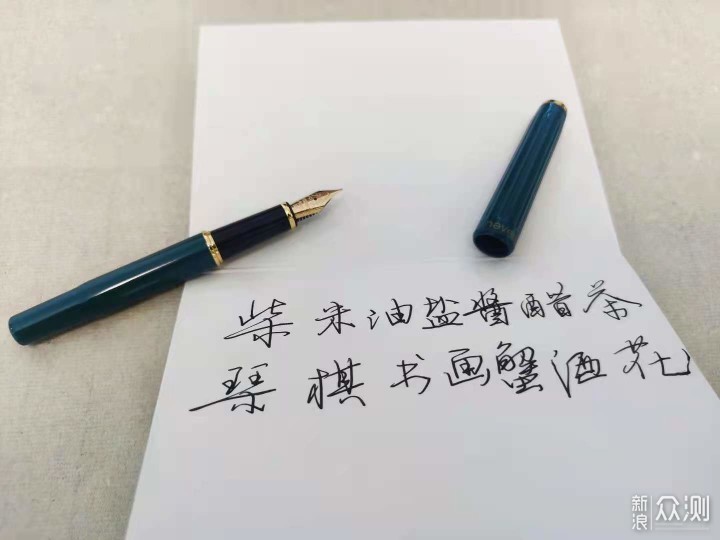 柴米油盐酱醋茶
琴棋书画蟹酒花
新浪众测